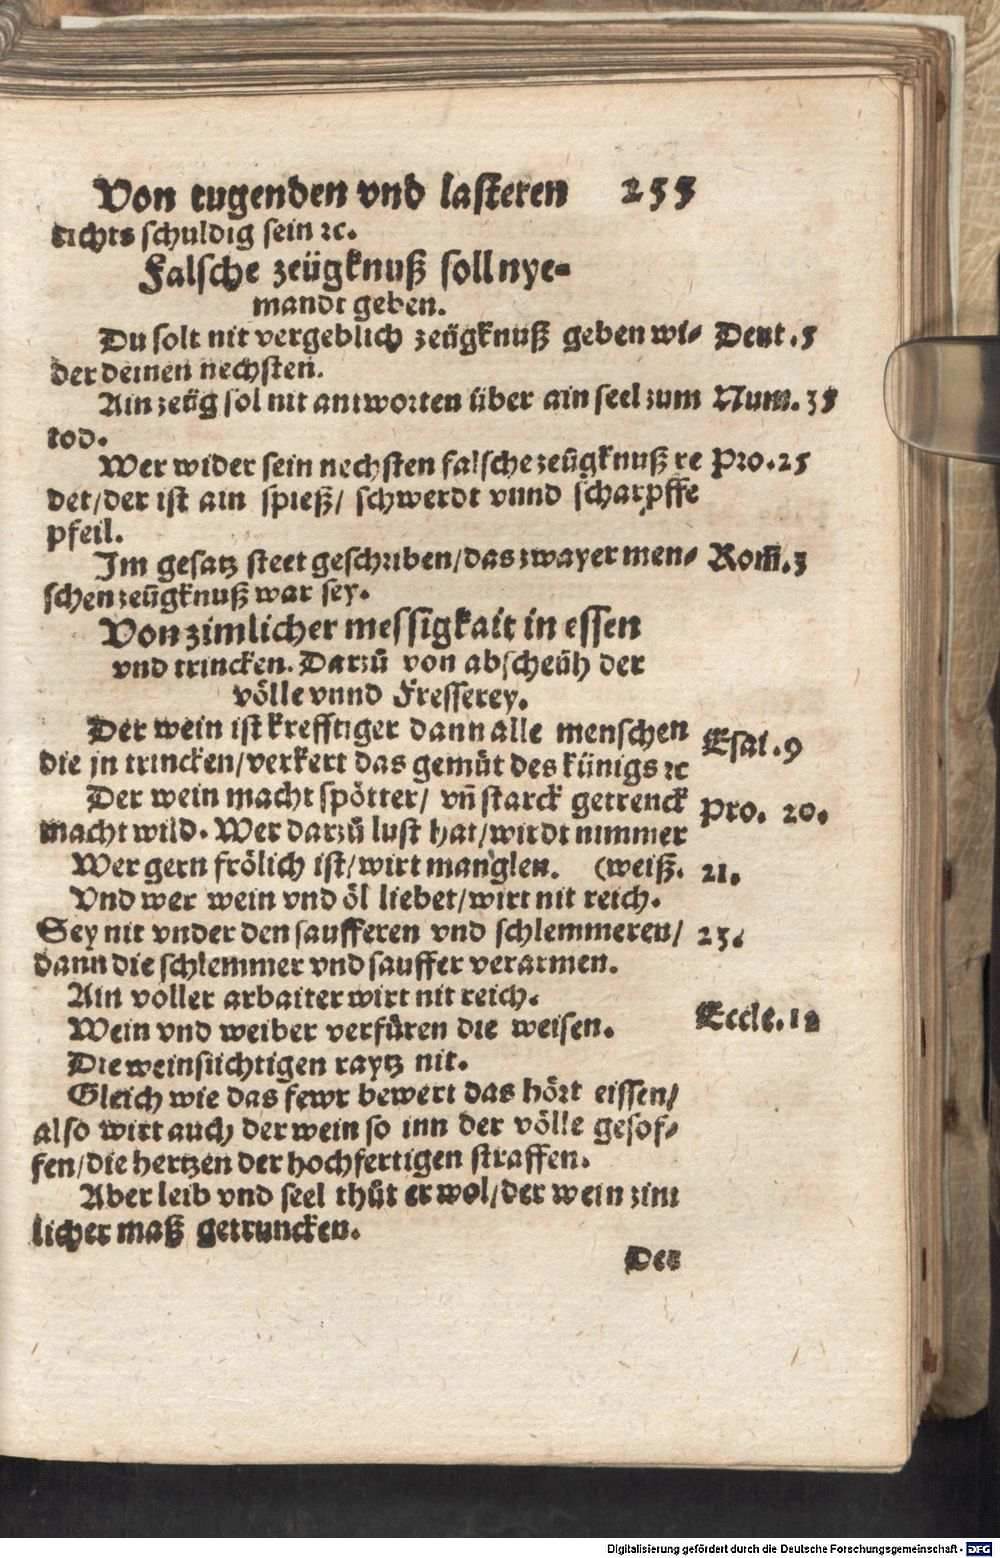 Von tugenden vnd lasteren 255
richts schuldig sein ꝛc.
Falsche zeügknuß soll nye-
mandt geben.
Du solt nit vergeblich zeügknuß geben wi- Deut. 5
der deinen nechsten.
Ain zeüg sol nit antworten über ain seel zum Num. 35
tod.
Wer wider sein nechsten falsche zeügknuß re Pro. 25
det/der ist ain spieß/ schwerdt vnnd scharpffe
pfeil.
Im gesatz steet geschriben/das zwayer men- Rom̃. 3
schen zeügknuß war sey.
Von zimlicher messigkait in essen
vnd trincken. Darzů von abscheüh der
völle vnnd Fresserey.
Der wein ist krefftiger dann alle menschen
die jn trincken/verkert das gemüt des künigs ꝛc Esai. 9
Der wein macht spötter/ vñ starck getrenck Pro. 20.
macht wild. Wer darzů lust hat/wirdt nimmer
Wer gern frölich ist/wirt manglen. (weiß. 21.
Vnd wer wein vnd öl liebet/wirt nit reich.
Sey nit vnder den saufferen vnd schlemmeren/ 23.
dann die schlemmer vnd sauffer verarmen.
Ain voller arbaiter wirt nit reich.
Wein vnd weiber verfüren die weisen. Eccle. 19
Die weinsüchtigen raytz nit.
Gleich wie das fewr bewert das hört eissen/
also wirt auch der wein so inn der völle gesof-
fen/die hertzen der hochfertigen straffen.
Aber leib vnd seel thůt er wol/der wein zim
licher maß getruncken.
Der
Digitalisierung gefördert durch die Deutsche Forschungsgemeinschaft - DFG